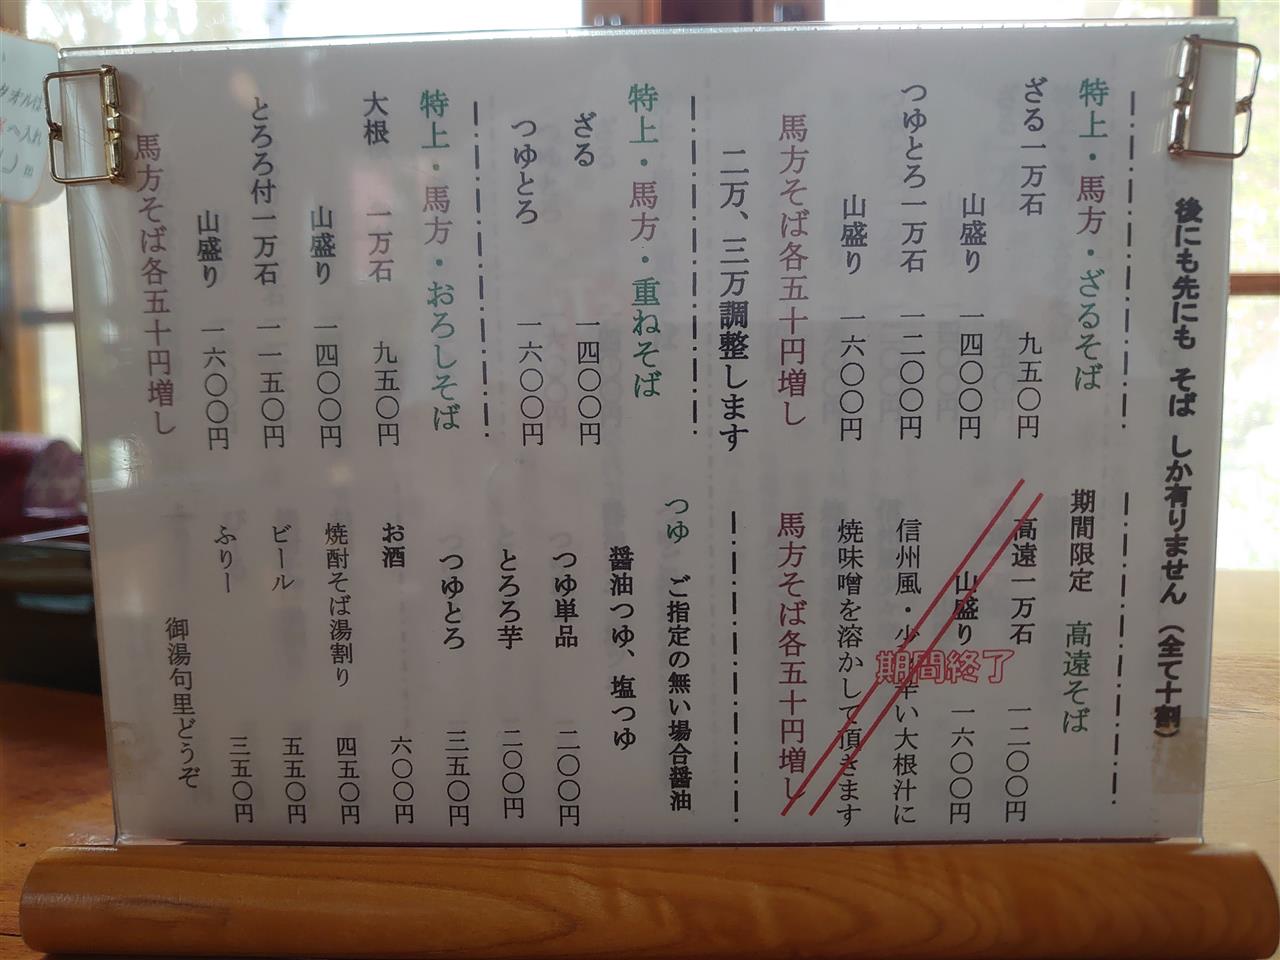 後にも先にも そば しか有りません（全て十割）
特上・馬方・ざるそば
ざる一万石 九五〇円
山盛り 一四〇〇円
つゆとろ一万石 一二〇〇円
山盛り 一六〇〇円
馬方そば各五十円増し
二万、三万調整します
特上・馬方・重ねそば
ざる 一四〇〇円
つゆとろ 一六〇〇円
特上・馬方・おろしそば
大根 一万石 九五〇円
山盛り 一四〇〇円
とろろ付一万石 一一五〇円
山盛り 一六〇〇円
馬方そば各五十円増し
期間限定 高遠そば
高遠一万石 一二〇〇円
山盛り 一六〇〇円
信州風・少 辛い大根汁に
焼味噌を溶かして頂きます
馬方そば各五十円増し
期間終了
つゆ ご指定の無い場合醤油
醤油つゆ、塩つゆ
つゆ単品 二〇〇円
とろろ芋 二〇〇円
つゆとろ 三五〇円
お酒 六〇〇円
焼酎そば湯割り 四五〇円
ビール 五五〇円
ふりー 三五〇円
御湯句里どうぞ
タオルは
へ入れ